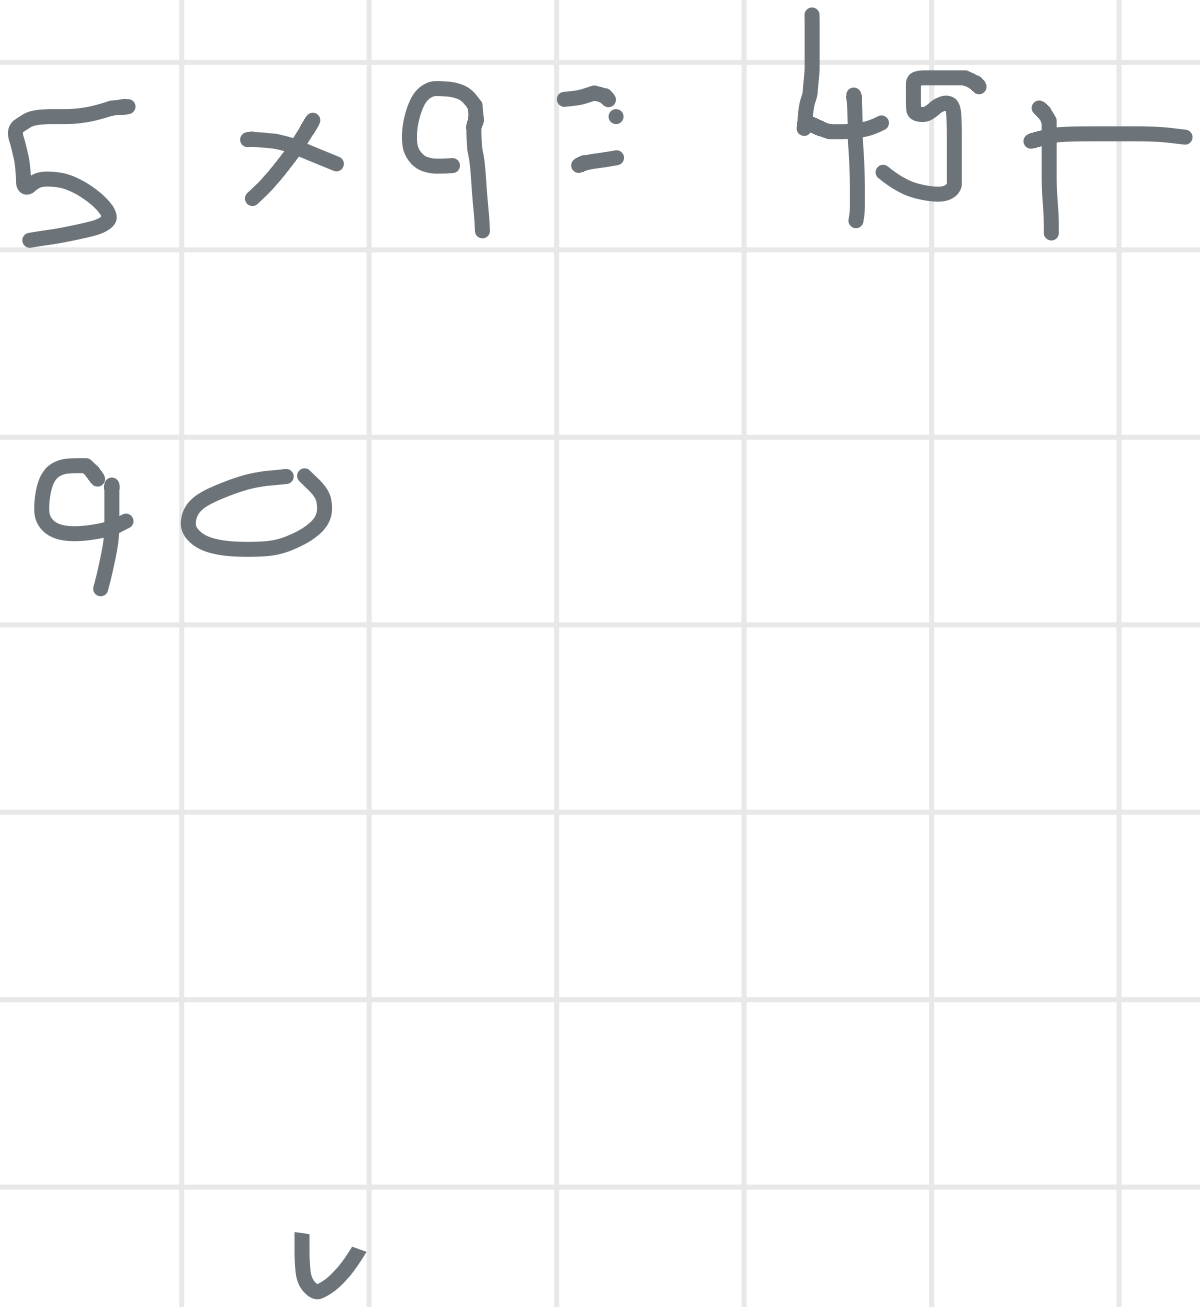 5 × 9 = 45 +
90